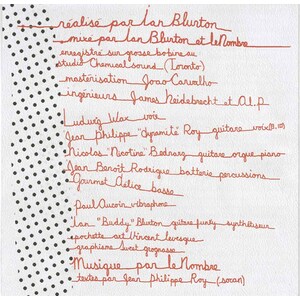 réalisé par Ian Blurton
mixé par Ian Blurton et le Nombre
enregistré sur grosse bobine au
studio Chemical sound (Toronto)
mastérisation Joao Carvalho
ingénieurs James Heidebrecht et O.L.P
Ludwig Wax voix
Jean Philippe "dynamite" Roy guitare voix
Nicolas "Nicotine" Bednarz guitare orgue piano
Jean Benoît Rodrigue batterie percussions
Gourmet Délice basse
Paul Aucoin vibraphone
Ian "Buddy" Blurton guitare funky synthétiseur
pochette art Vincent Lévesque
graphisme Sweet grognasse
Musique par le Nombre
textes par Jean Philippe Roy (socan)